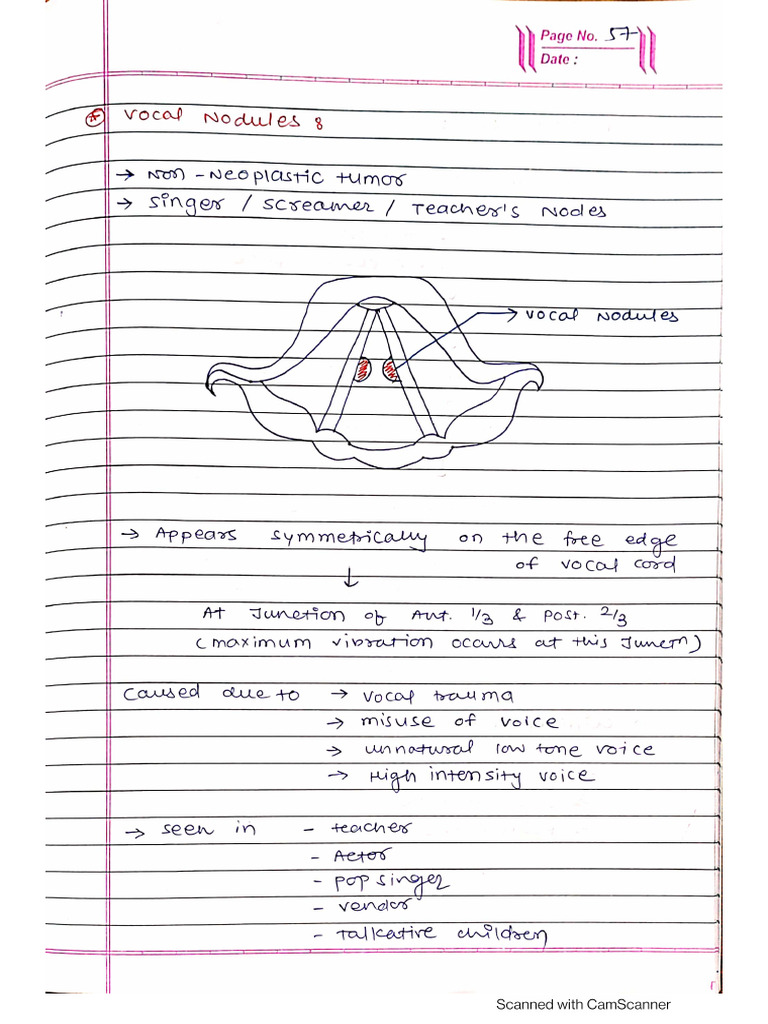 Page No. 57
Date :
* Vocal Nodules :
→ Non-Neoplastic tumor
→ Singer / Screamer / Teacher's Nodes
→ Vocal Nodules
→ Appears symmetrically on the free edge
of vocal cord
↓
At Junction of Ant. 1/3 & Post. 2/3
(maximum vibration occurs at this Junctn)
Caused due to → vocal trauma
→ misuse of voice
→ unnatural low tone voice
→ High intensity voice
→ seen in - teacher
- Actor
- pop singer
- vendor
- talkative children
Scanned with CamScanner